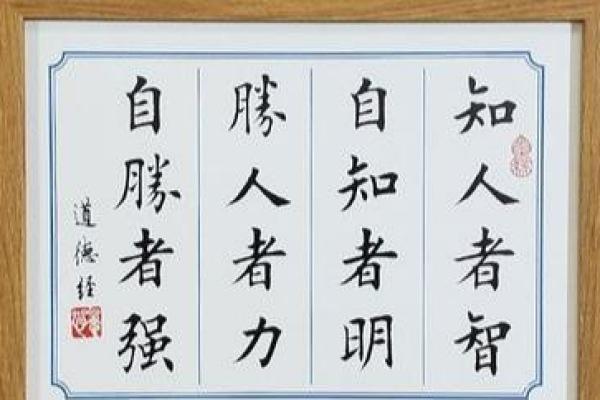 知人者智
自知者明
勝人者力
自勝者强
道德经